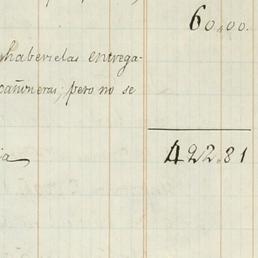 60,00.
haberselas entrega-
cañoneras; pero no se
422.81